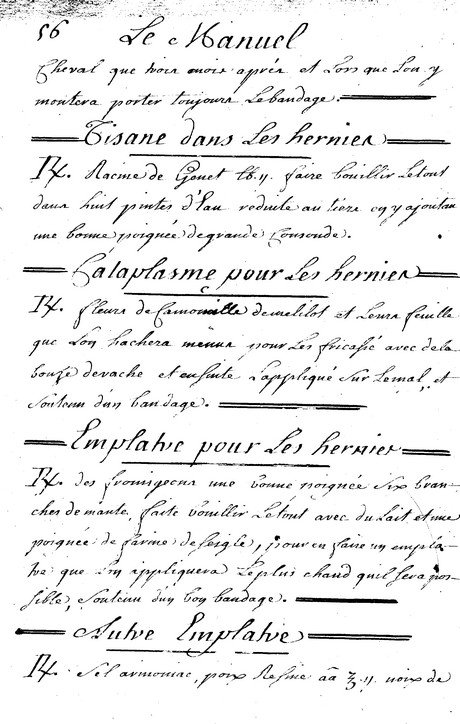 56 Le Manuel
Cheval que trois mois aprés et Lors que Lon y
montera porter toujours Lebandage.
Tisane dans Les hernies
R. Racine de Genet lb.ij. faire bouillir Letout
dans huit pintes d'Eau reduite au tiers en y ajoutan
une bonne poignée degrande Consonde.
Cataplasme pour Les hernies
R. fleurs de Camomille demelilot et Leurs feuille
que Lon hachera menus pour Les fricassé avec dela
bouze devache et ensuite Lappliqué Sur Lemal, et
Soutenu dun bandage.
Emplatre pour Les hernies
R. des une bonne poignée Six bran-
ches demante, faite bouillir Letout avec du Lait et une
poignée de farine deseigle, pour en faire un empla-
tre que Lon appliquera Leplus chaud quil sera pos-
sible, Soutenu dun bon bandage.
Autre Emplatre
R. Sel armoniac, poix Resine āā ℥.ij. noix de